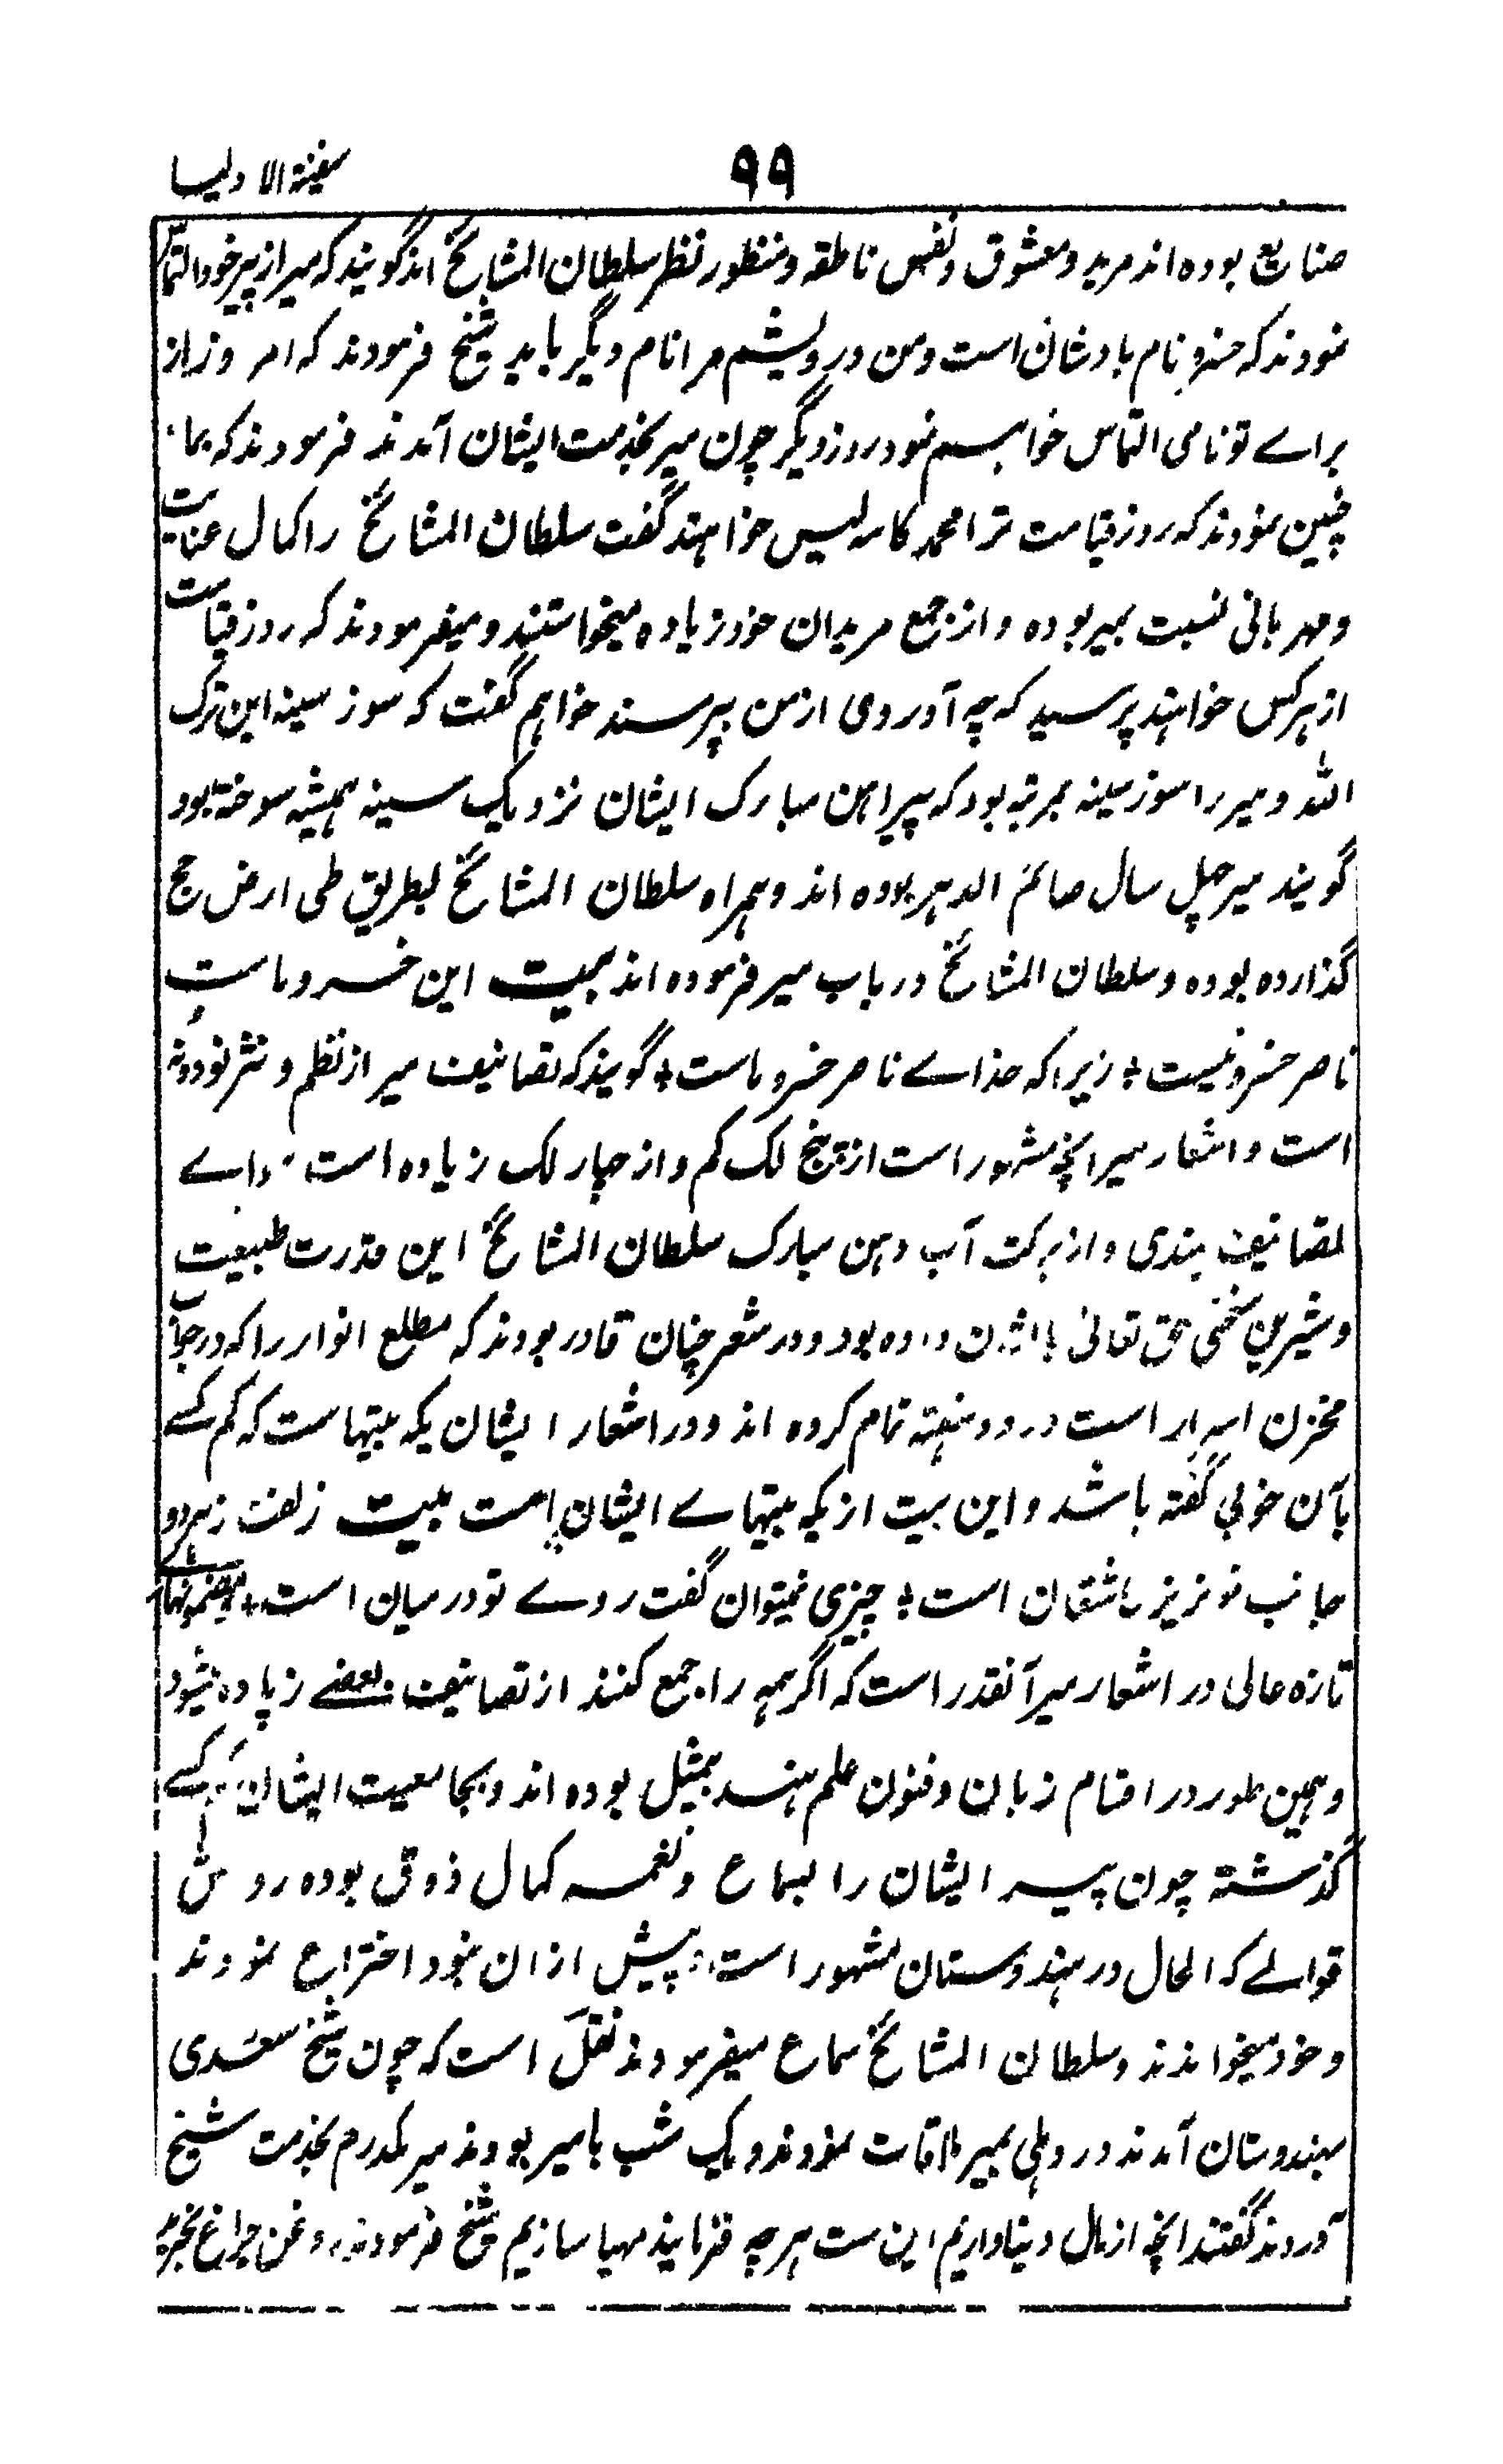 سفینة الاولیا
۹۹
صنایع بوده اند مرید و معشوق و نفس ناطقه و منظور نظر سلطان المشائخ اند گویند که میر از پیر خود التماس
نمودند که خسرو نام بادشان است و من درویشم مرا نام دیگر باید شیخ فرمودند که امروز از
براے تو نامی التماس خواہم نمود روز دیگر چون میر بخدمت ایشان آمدند فرمودند که بما
چنین نمودند که روز قیامت ترا محمد کاسه لیس خواهند گفت سلطان المشائخ را کمال عنایت
و مهربانی نسبت بمیر بوده و از جمع مریدان خود زیاده میخواستند و میفرمودند که روز قیامت
از هر کس خواهند پرسید که چه آوردی از من بپرسند خواهم گفت که سوز سینه این ترک
الله و میر را سوز سینه بمرتبه بود که پیراهن مبارک ایشان نزدیک سینه همیشه سوخته بود
گویند میر چهل سال صائم الدهر بوده اند و همراه سلطان المشائخ بطریق طی ارض حج
گذارده بوده و سلطان المشائخ در باب میر فرموده اند بیت این خسرو ماست
ناصر خسرو نیست ؛ زیرا که خداے ناصر خسرو ماست ؛ گویند که تصانیف میر از نظم و نثر نود و نه
است و اشعار میر انچه مشهور است از پنج لک کم و از چار لک زیاده است ورائے
تصانیف هندی و از برکت آب دهن مبارک سلطان المشائخ این قدرت طبیعت
و شیرین سخنی حق تعالی باایشان داده بود و در شعر چنان قادر بودند که مطلع انوار را که در جواب
مخزن اسرار است در دو هفته تمام کرده اند و در اشعار ایشان یکه بیتهاست که کم کسے
بآن خوبی گفته باشد و این بیت از یکه بیتهاے ایشان است بیت زلفت ز هر دو
جانب خونریز عاشقان است ؛ چیزی نمیتوان گفت روے تو در میان است ؛
تازه عالی در اشعار میر آنقدر است که اگر همه را جمع کنند از تصانیف بعضے زیاده میشود
و همین طور در اقسام زبان و فنون علم هند بیمثل بوده اند و بجامعیت ایشان کسے
گذشته چون پیر ایشان را بسماع و نغمه کمال ذوق بوده روش
قوالے که الحال در هندوستان مشهور است پیش ازان نبود اختراع نمودند
و خود میخواندند و سلطان المشائخ سماع میفرمودند نقل است که چون شیخ سعدی
بهندوستان آمدند در دهلی بمیر ملاقات نمودند و یک شب بامیر بودند میر یکدرم بخدمت شیخ
آوردند گفتند انچه از مال دنیا داریم این ست هر چه فرمایند مهیا سازیم شیخ فرمودند روغن چراغ